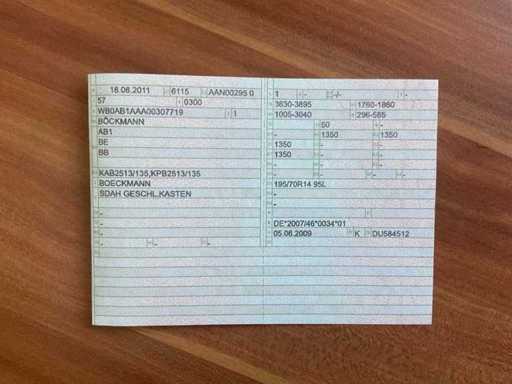 18.06.2011 6115 AAN00295 0
57 0300
WB0AB1AAA00307719 1
BÖCKMANN
AB1
BE
BB
-
KAB2513/135,KPB2513/135
BOECKMANN
SDAH GESCHL.KASTEN
-
-
-
-
- - -
1 - -/-
3630-3895 1760-1860
1005-3040 296-585
- 50 - -
- 1350 1350
1350 - -
1350 - -
- - -
- -
195/70R14 95L
-
-
-
DE*2007/46*0034*01
05.06.2009 K DU584512